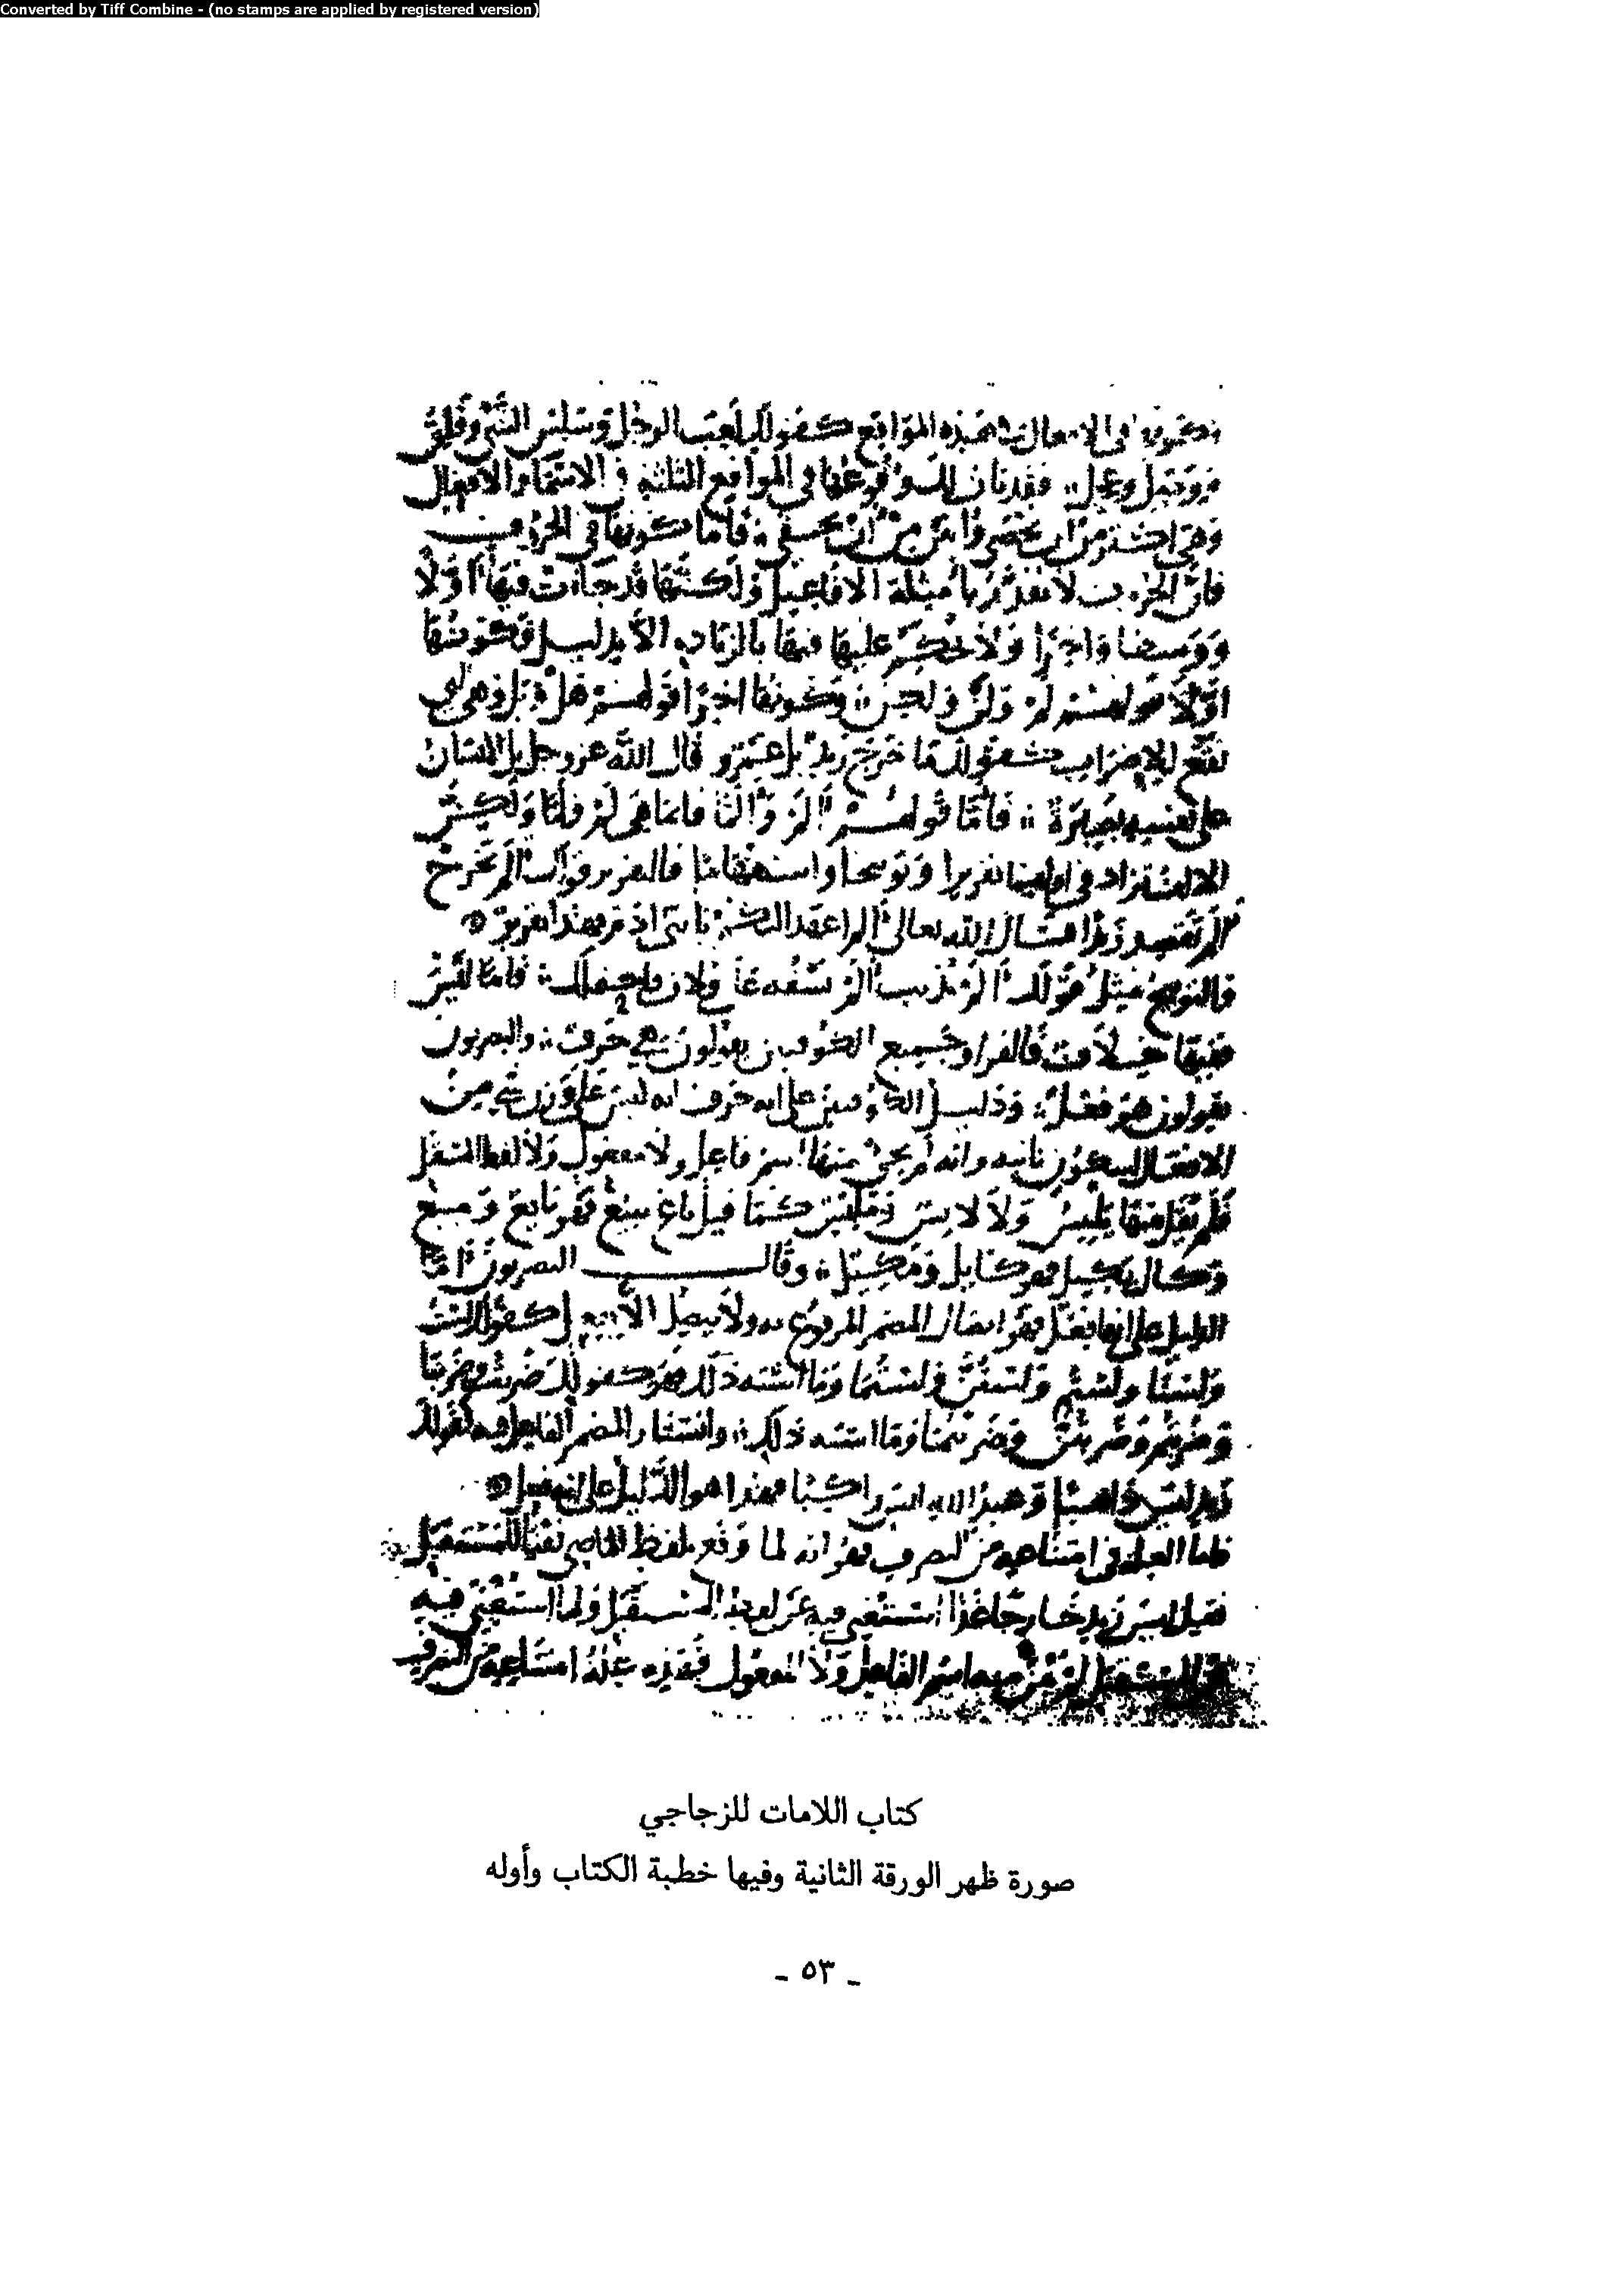 Converted by Tiff Combine - (no stamps are applied by registered version)
في الافعال هذه المواقع كقولك لعب الرجل وسلس الشيء وقلق
وقبل وعجل فقد بان لك وقوعها في المواقع الثلثة في الاسماء والافعال
وهي اكثر من ان تحصى وابين من ان تخفى فاما كونها في الحروف
فان الحروف لا تقدر بامثلة الافاعيل ولكنها قد جاءت فيها اولا
ووسطا واخرا ولا يحكم عليها فيها بالزيادة الا بدليل فكونها
اولا قولهم لم ولن ولكن وكونها اخرا قولهم هل وبل وهي
تقع للاضراب كقولك ما خرج زيد بل عمرو قال الله عز وجل بل الانسان
على نفسه بصيرة فاما قولهم الم والما فانما هي لم ولما ولكن
الالف تزاد في اولهما تقريرا وتوبيخا واستفهاما فالتقرير قولك الم تخرج
الم تقصد زيدا قال الله تعالى الم اعهد اليكم يا بني ادم فهذا تقرير
والتوبيخ مثل قولك الم تذنب الم تسفه على فلان فاحتملك فاما ليس
ففيها خلاف فالفراء وجميع الكوفيين يقولون هي حرف والبصريون
يقولون هو فعل ودليل الكوفيين على انه حرف انه ليس على وزن شيء من
الافعال لسكون ثانيه وانه لم يجئ منها اسم فاعل ولا مفعول ولا لفظ المستقبل
فلم يقل منها يليس ولا لايس ومليس كما قيل باع يبيع فهو بايع ومبيع
وكال يكيل فهو كايل ومكيل وقال البصريون اما
الدليل على انها فعل فهو اتصال المضمر المرفوع به ولا يتصل الا بفعل كقولك لست
ولسنا ولستم ولستن ولستما وما اشبه ذلك فهو كقولك ضربت وضربنا
وضربتم وضربتن وضربتما وما اشبه ذلك واستتار المضمر الفاعل فيه كقولك
زيد ليس ذاهبا وعبد الله ليس راكبا فهذا هو الدليل على انه فعل
فاما العلة في امتناعه من التصرف فهو انه لما وقع بلفظ الماضي نفيا للمستقبل
فقيل ليس زيد خارجا غدا استغني فيه عن لفظ المستقبل ولما استغني فيه
عن المستقبل لم يبن منه اسم الفاعل ولا المفعول فهذه علة امتناعه من التصرف
كتاب اللامات للزجاجي
صورة ظهر الورقة الثانية وفيها خطبة الكتاب وأوله
- ٥٣ -